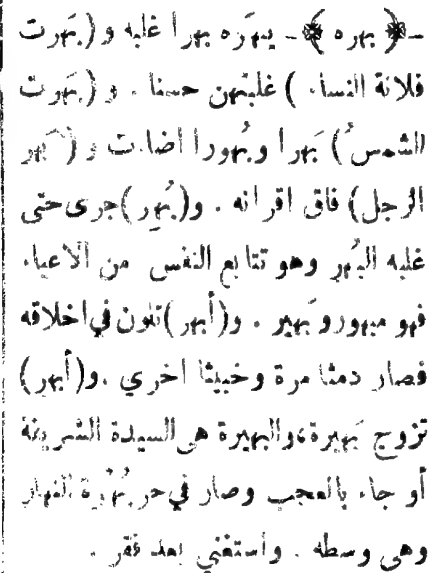 -﴿ بهره ﴾- يبهَره بهرا غلبه و (بَهرت
فلانة النساء ) غلبتهن حسنا . و (بَهرت
الشمسُ) بَهرا وبُهورا اضاءت و (بَهر
الرجل) فاق اقرانه . و(بُهِر)جرى حتى
غلبه البُهر وهو تتابع النفس من الاعياء
فهو مبهور وبَهير . و(أبهر)تلون في اخلاقه
فصار دمثا مرة وخبيثا اخري .و(أبهر)
تزوج بَهيرة،والبهيرة هي السيدة الشريفة
أو جاء بالعجب وصار في حر بُهْرة النهار
وهي وسطه . واستغني بعد فقر .